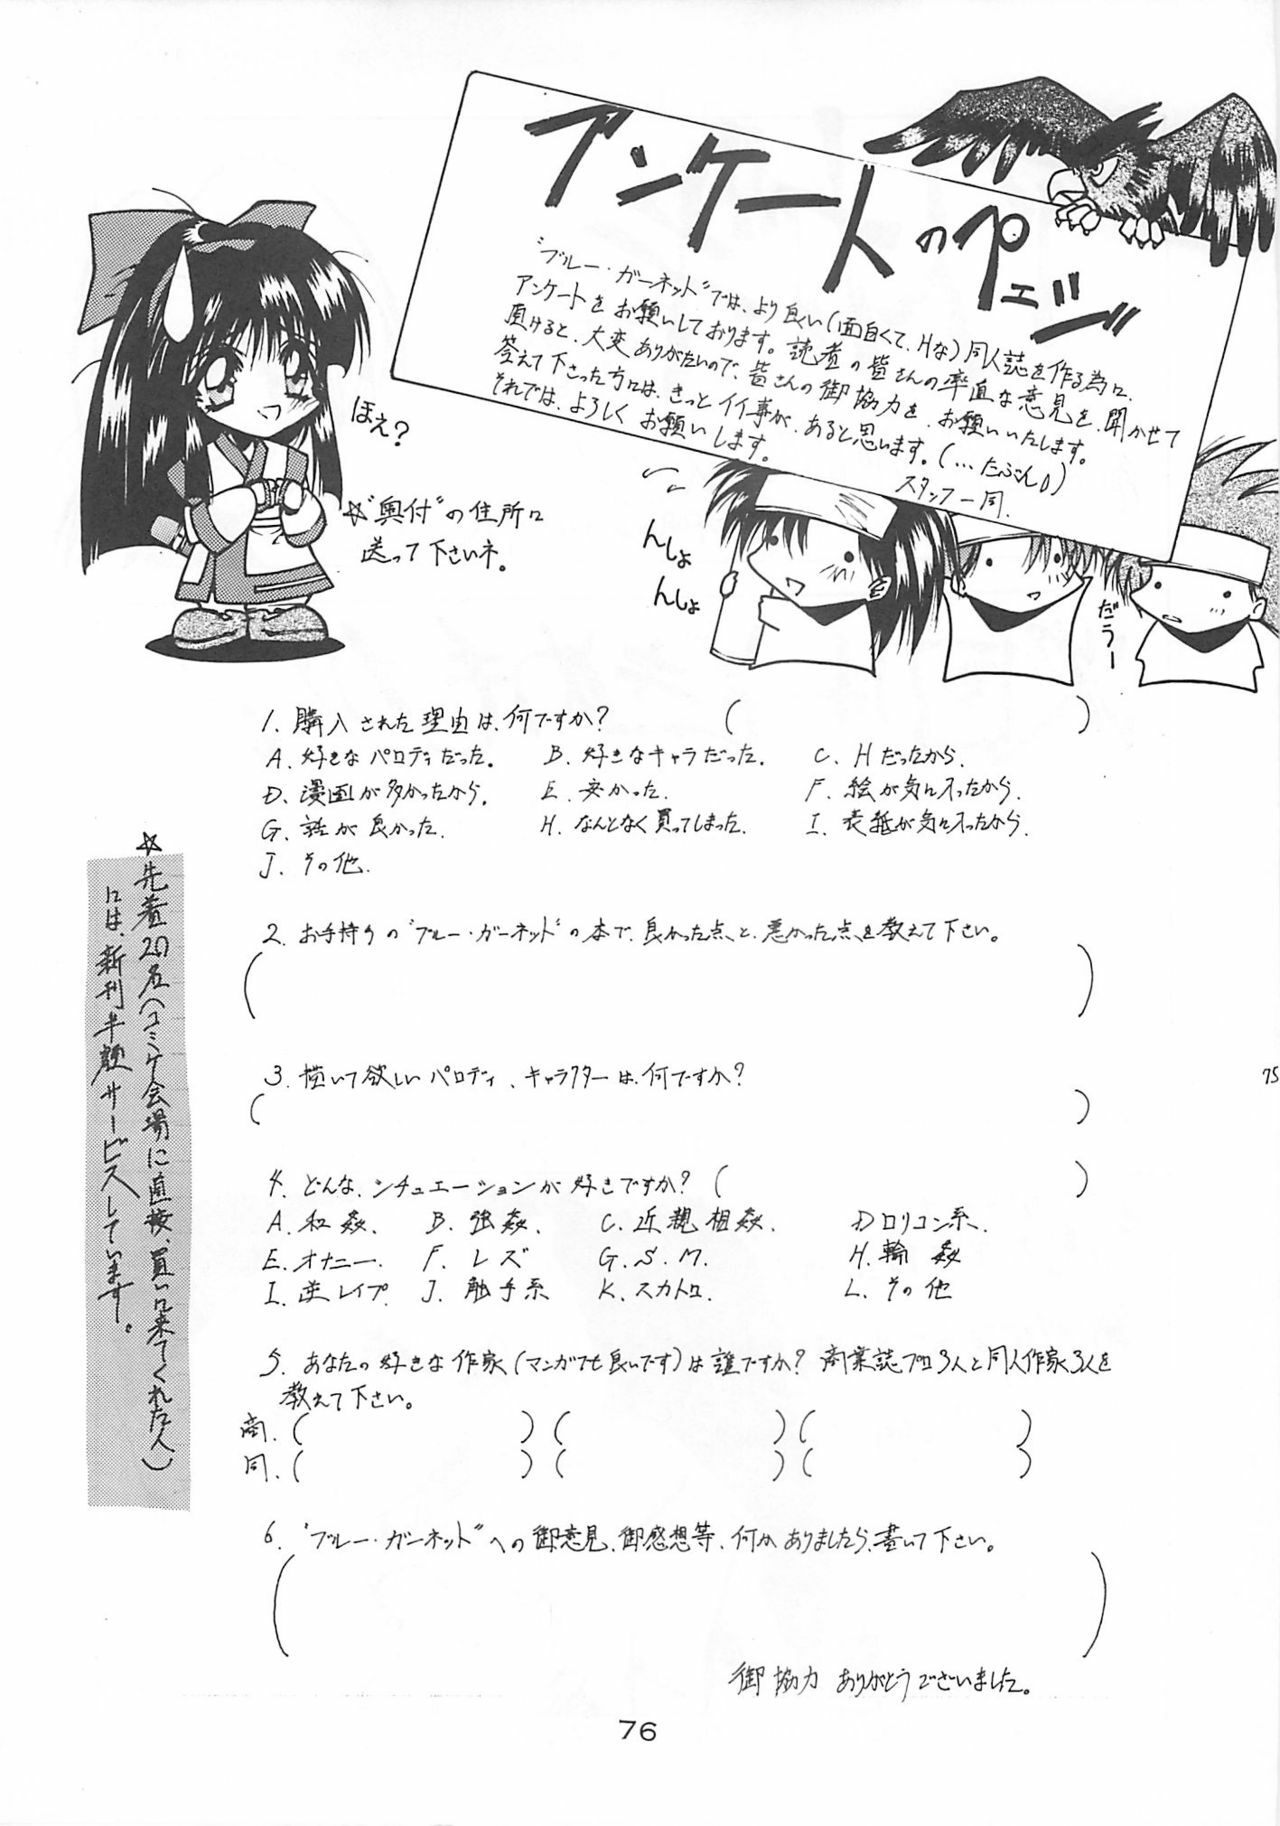 アンケートのペェジ
"ブルー・ガーネット"では、より良い(面白くて、Hな)同人誌を作る為に、
アンケートをお願いしております。読者の皆さんの率直な意見を、聞かせて
頂けると、大変ありがたいので、皆さんの御協力を、お願いいたします。
答えて下さった方には、きっとイイ事が、あると思います。(…たぶん。)
それでは、よろしくお願いします。
スタッフ一同.
ほえ?
☆"奥付"の住所に
送って下さいネ。
んしょ
んしょ
だぅー
1. 購入された理由は、何ですか? ( )
A. 好きなパロディだった。 B. 好きなキャラだった。 C. Hだったから.
D. 漫画が多かったから。 E. 安かった. F. 絵が気に入ったから.
G. 話が良かった. H. なんとなく買ってしまった. I. 表紙が気に入ったから.
J. その他.
2. お手持りの"ブルー・ガーネット"の本で、良かった点と、悪かった点を教えて下さい。
( )
3. 描いて欲しいパロディ、キャラクターは、何ですか?
( )
4. どんな、シチュエーションが好きですか? ( )
A. 和姦. B. 強姦. C. 近親相姦. D ロリコン系.
E. オナニー. F. レズ G. S.M. H. 輪姦
I. 逆レイプ. J. 触手系 K. スカトロ. L. その他
5. あなたの好きな作家(マンガでも良いです)は誰ですか? 商業誌プロ3人と同人作家3人を
教えて下さい。
商. ( ) ( ) ( )
同. ( ) ( ) ( )
6. "ブルー・ガーネット"への御意見、御感想等、何かありましたら、書いて下さい。
( )
御協力ありがとうございました。
☆先着20名(コミケ会場に直接、買いに来てくれた人)
には、新刊半額サービスしています。
75
76